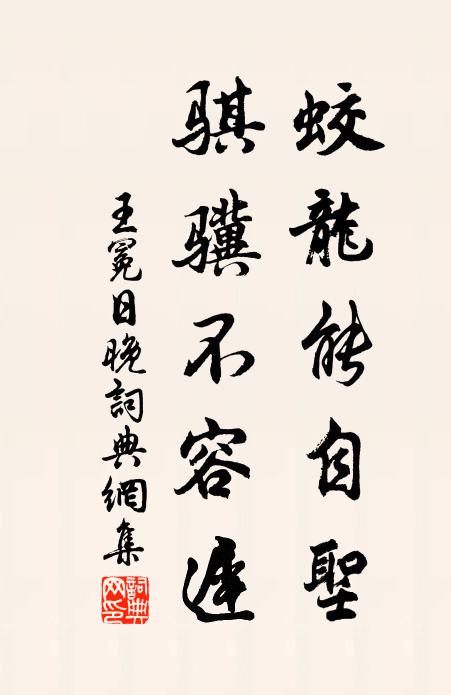 蛟龍能自聖
骐骥不容遲
王冕日晚詞典網集
詞典网印